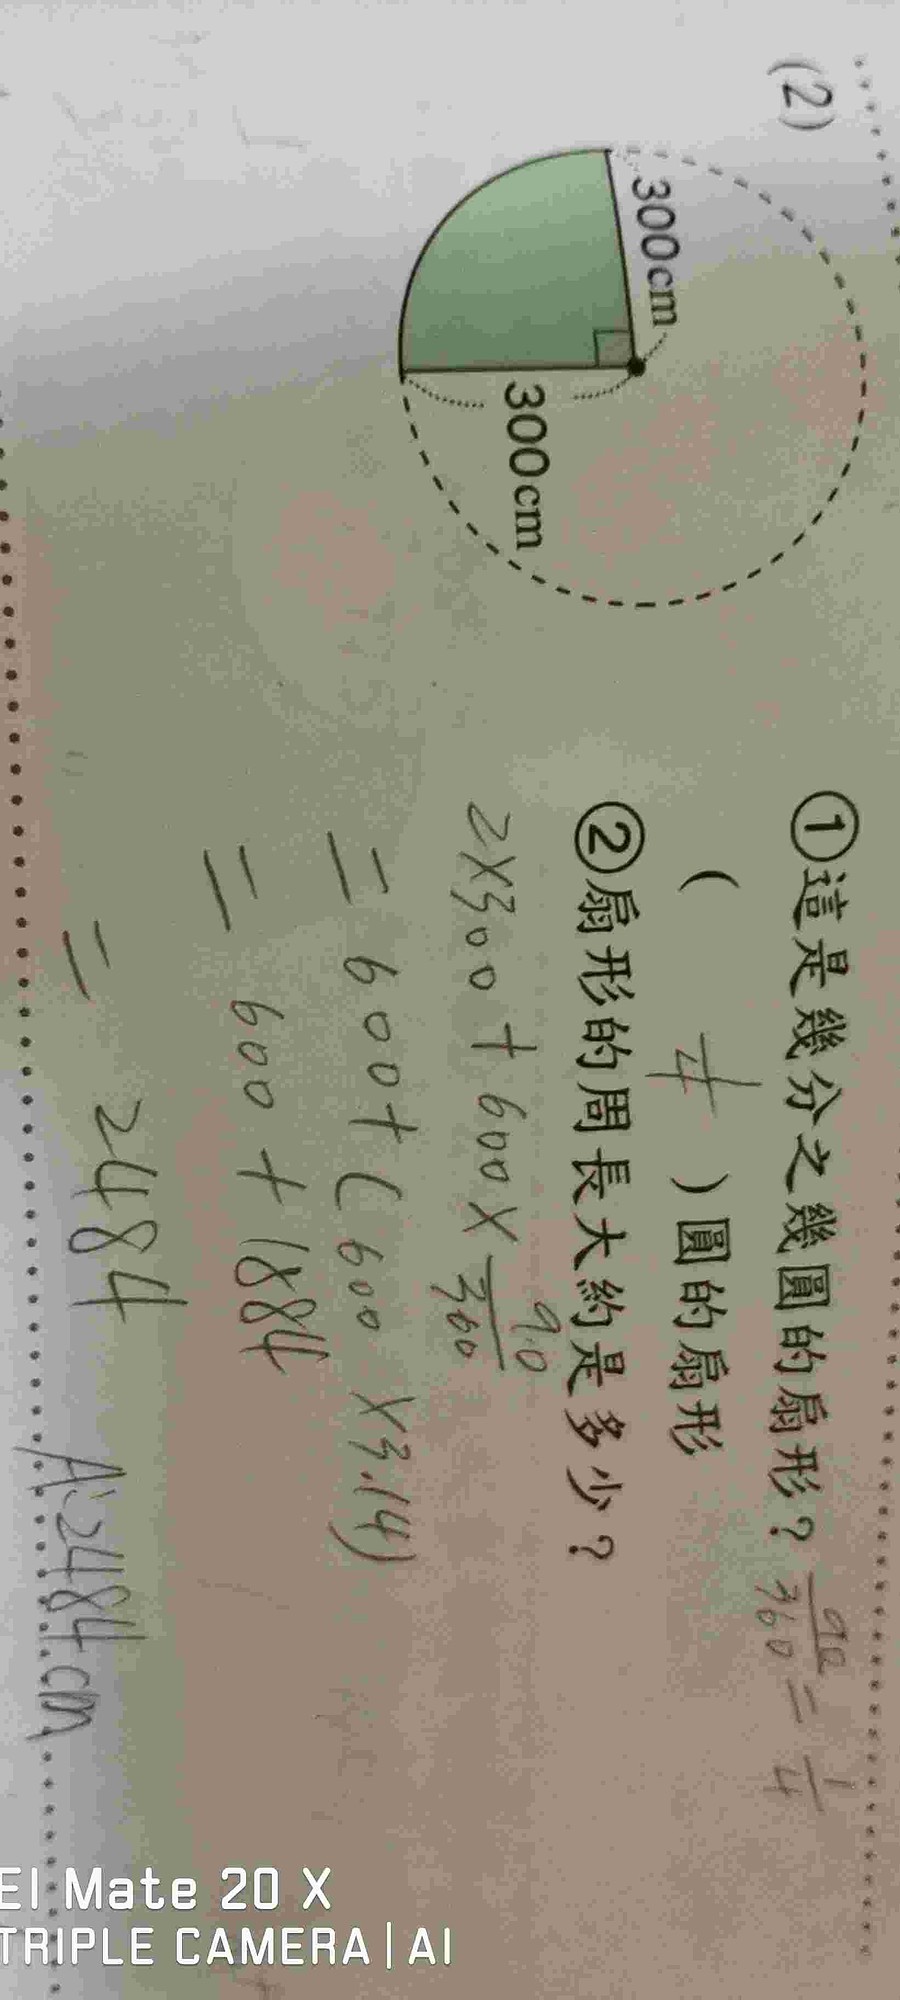 (2)
300cm
300cm
①這是幾分之幾圓的扇形？ 90/360 = 1/4
( 1/4 ) 圓的扇形
②扇形的周長大約是多少？
2×300 + 600 × 90/360
= 600 + (600 × 3.14)
= 600 + 1884
= 2484
A:2484cm
EI Mate 20 X
TRIPLE CAMERA | AI